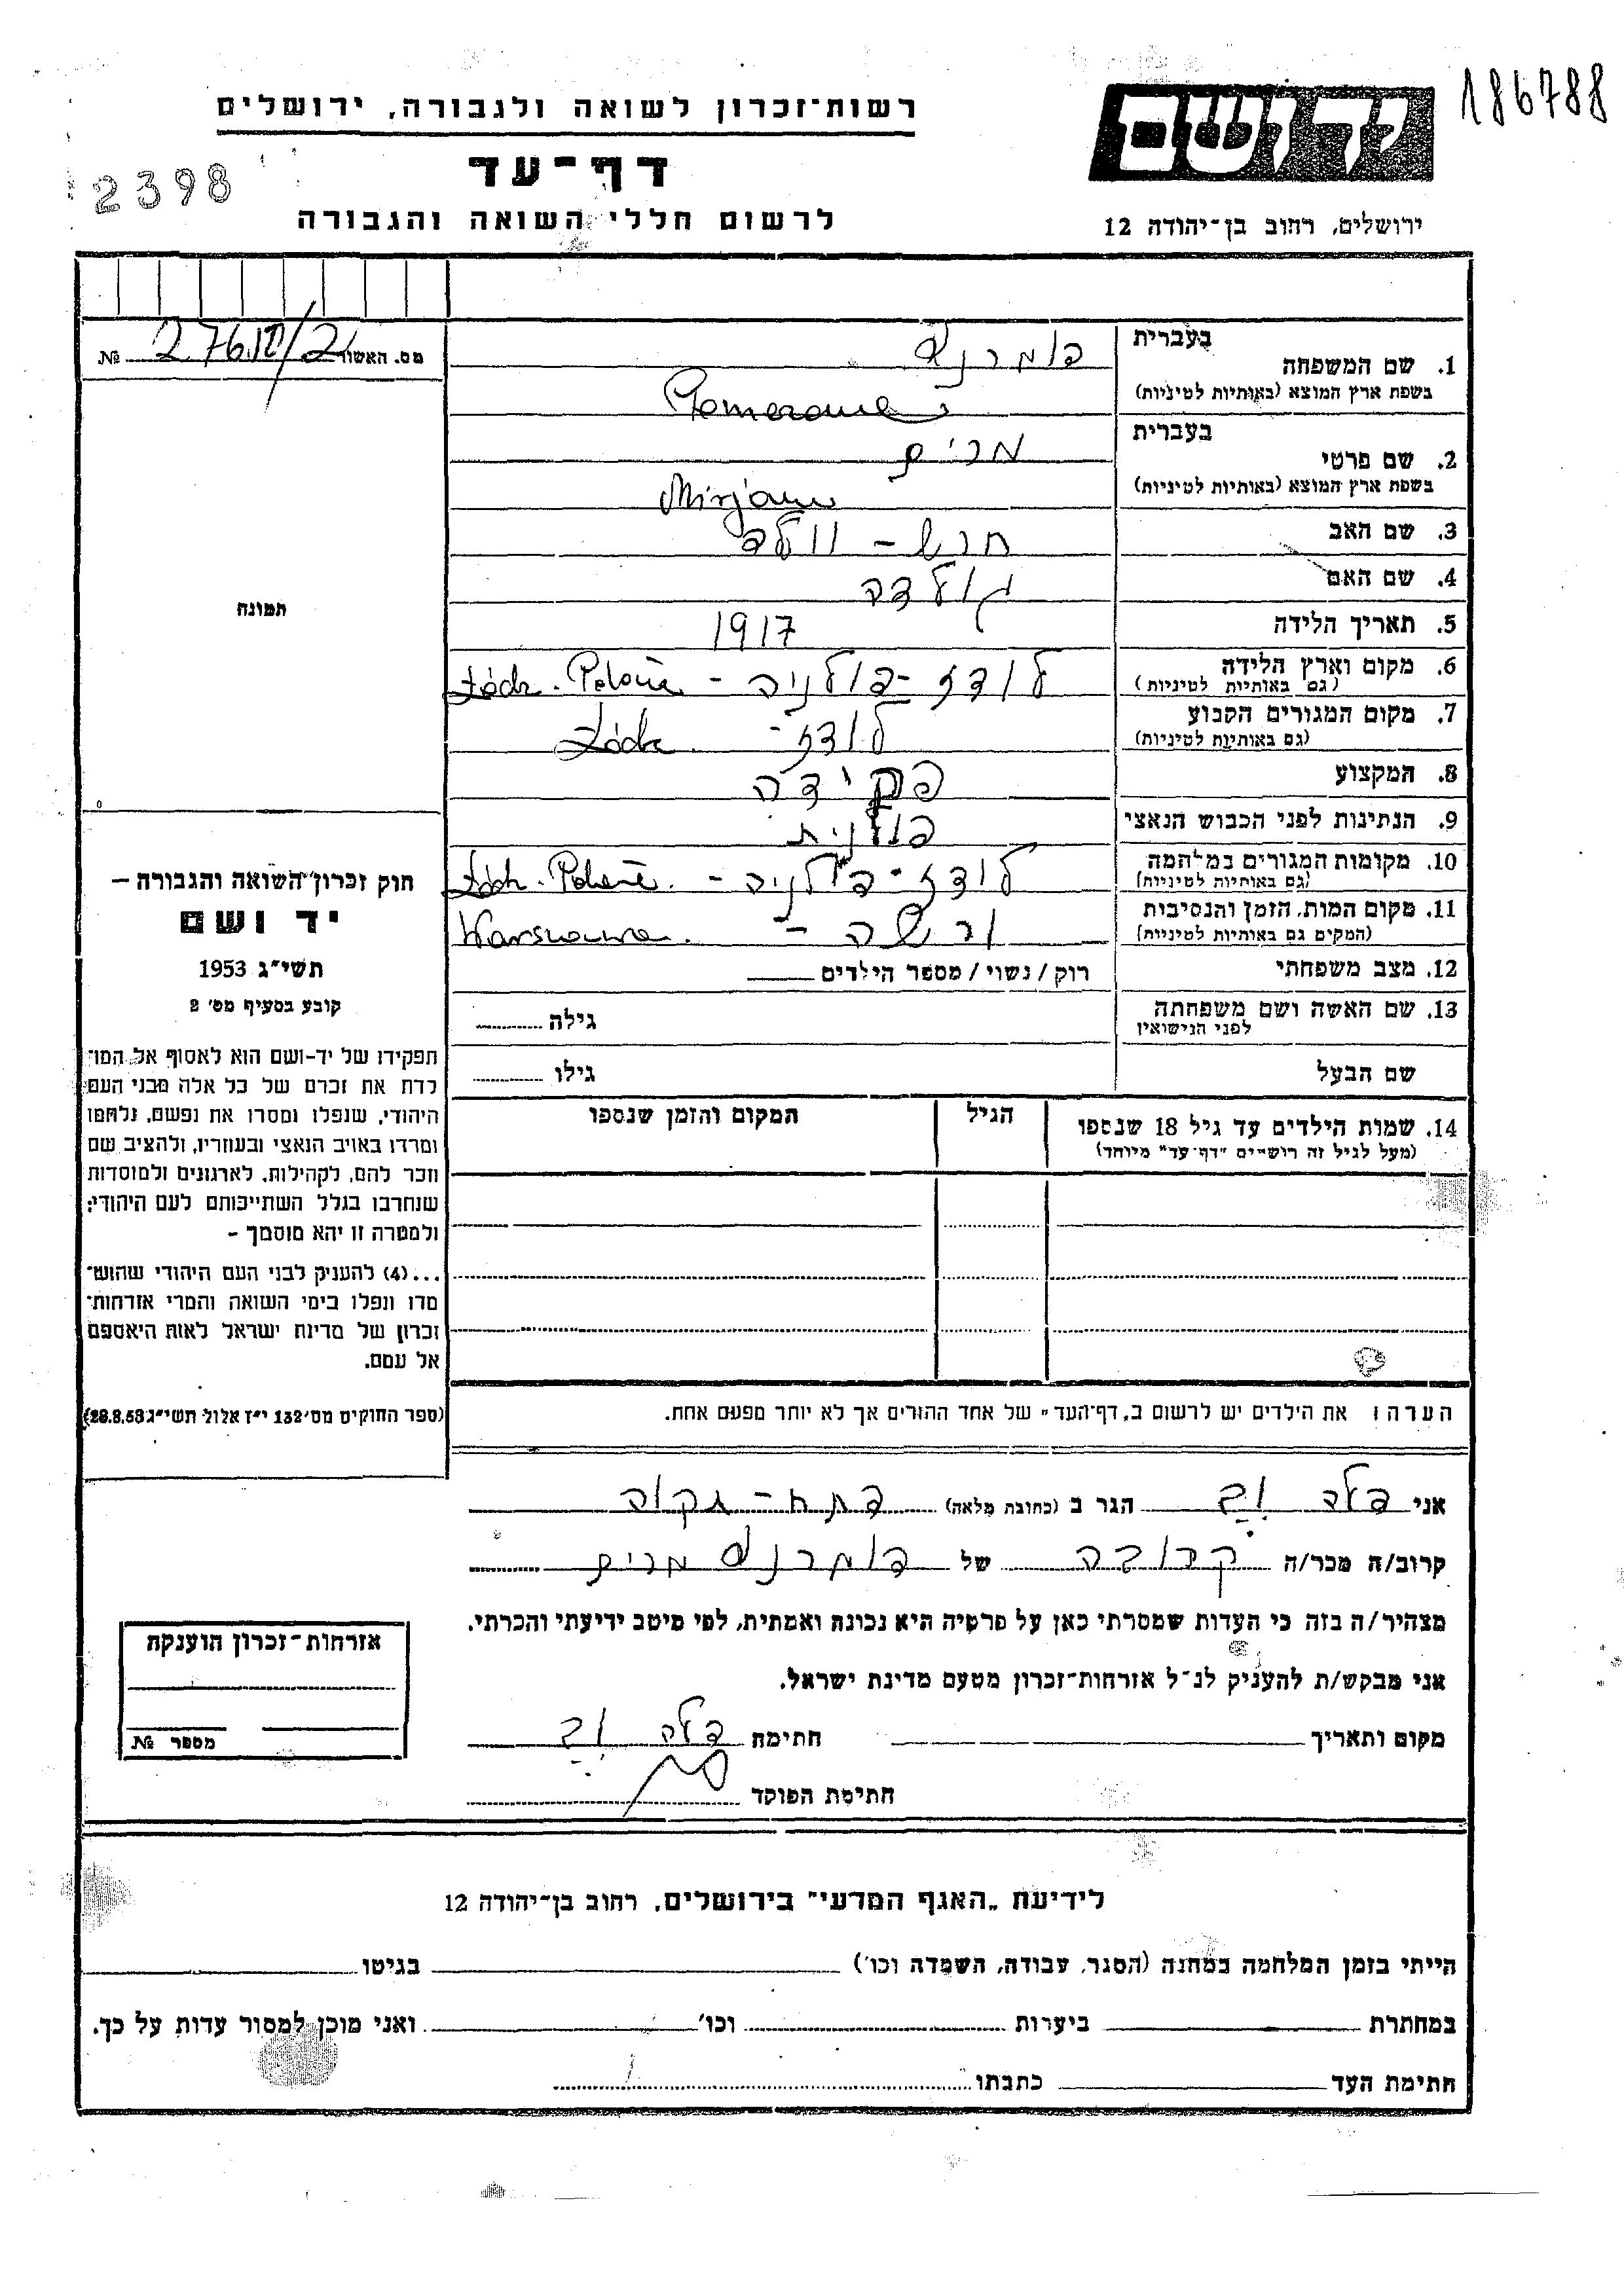 186788
יד ושם
רשות־זכרון לשואה ולגבורה, ירושלים
דף־עד
2398
לרשום חללי השואה והגבורה
ירושלים, רחוב בן־יהודה 12
מס. האשור № 276
1. שם המשפחה
בעברית
בשפת ארץ המוצא (באותיות לטיניות)
2. שם פרטי
בעברית מרים
בשפת ארץ המוצא (באותיות לטיניות) Mirjam
3. שם האב
4. שם האם גולדה
5. תאריך הלידה 1917
6. מקום וארץ הלידה לודז - פולניה -
(גם באותיות לטיניות)
7. מקום המגורים הקבוע לודז - Łódz
(גם באותיות לטיניות)
8. המקצוע פקידה
9. הנתינות לפני הכבוש הנאצי פולנית
10. מקומות המגורים במלחמה לודז - פולניה -
(גם באותיות לטיניות)
11. מקום המות, הזמן והנסיבות ורשה - Warszawa
(המקום גם באותיות לטיניות)
12. מצב משפחתי רוק / נשוי / מספר הילדים
13. שם האשה ושם משפחתה גילה
לפני הנישואין
שם הבעל גילו
14. שמות הילדים עד גיל 18 שנספו הגיל המקום והזמן שנספו
(מעל לגיל זה רושמים "דף־עד" מיוחד)
הערה: את הילדים יש לרשום ב„דף־העד" של אחד ההורים אך לא יותר מפעם אחת.
תמונה
חוק זכרון השואה והגבורה –
יד ושם
תשי״ג 1953
קובע בסעיף מס׳ 2
תפקידו של יד-ושם הוא לאסוף אל המו־
לדת את זכרם של כל אלה מבני העם
היהודי, שנפלו ומסרו את נפשם, נלחמו
ומרדו באויב הנאצי ובעוזריו, ולהציב שם
וזכר להם, לקהילות, לארגונים ולמוסדות
שנחרבו בגלל השתייכותם לעם היהודי;
ולמטרה זו יהא מוסמך –
...(4) להעניק לבני העם היהודי שהוש־
מדו ונפלו בימי השואה והמרי אזרחות־
זכרון של מדינת ישראל לאות היאספם
אל עמם.
(ספר החוקים מס׳ 132 י״ז אלול תשי״ג 28.8.53)
אני הגר ב (כתובת מלאה) פתח-תקוה
קרוב/ה מכר/ה קרובה של מרים
מצהיר/ה בזה כי העדות שמסרתי כאן על פרטיה היא נכונה ואמתית, לפי מיטב ידיעתי והכרתי.
אני מבקש/ת להעניק לנ״ל אזרחות־זכרון מטעם מדינת ישראל.
מקום ותאריך חתימה
חתימת הפוקד
אזרחות־זכרון הוענקה
מספר №
לידיעת „האגף המדעי" בירושלים, רחוב בן־יהודה 12
הייתי בזמן המלחמה במחנה (הסגר, עבודה, השמדה וכו׳) בגיטו
במחתרת ביערות וכו׳ ואני מוכן למסור עדות על כך.
חתימת העד כתבתו